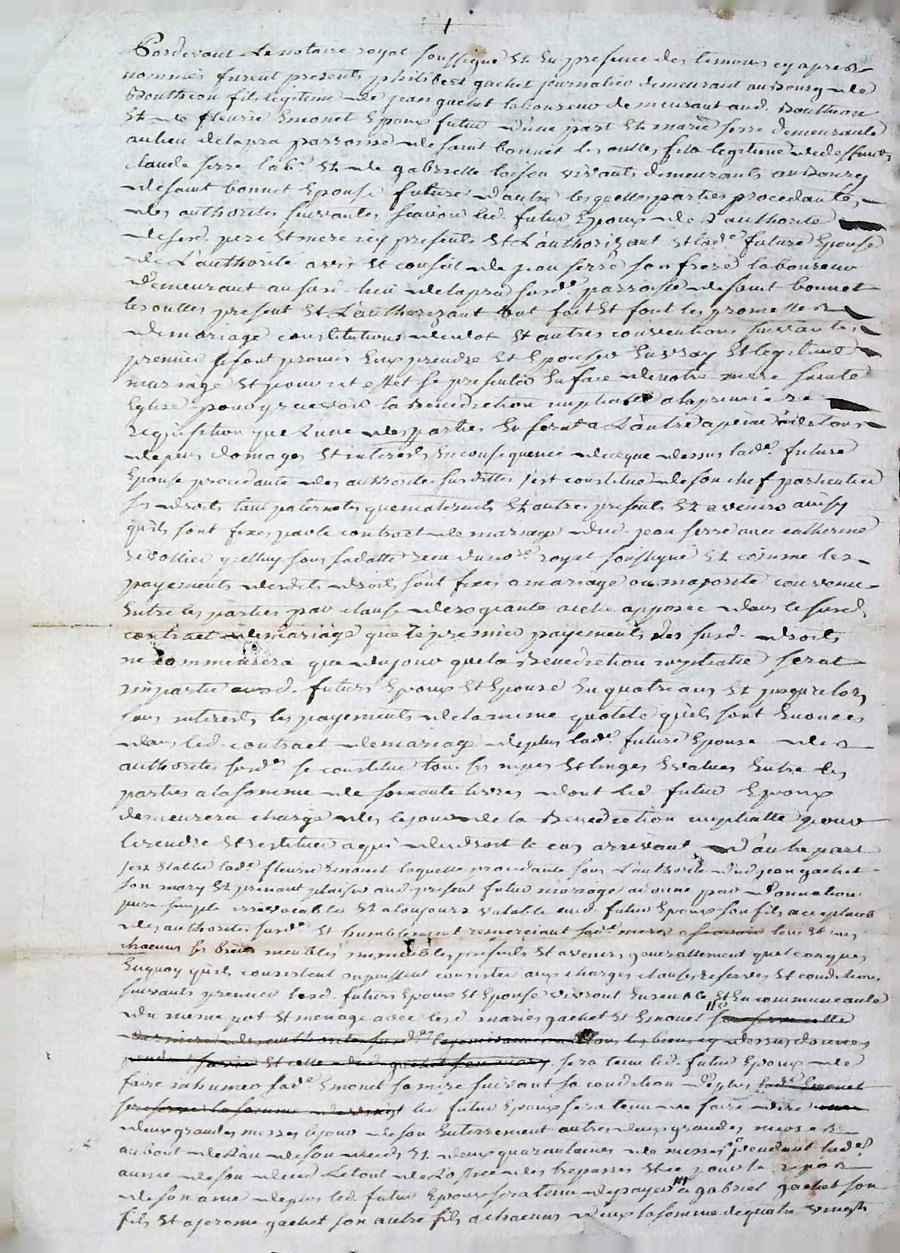 1
Pardevant Le notaire royal soussigné Et En presence des temoins cy apres
nommés furent presents philibert gachet journalier demeurant au Bourg de
Boutheon fils legitime de jean gachet laboureur demeurant aud. Boutheon
Et de fleurie Emonet Epoux futur d'une part Et marie serre demeurante
au lieu delapra parroisse de saint bonnet les oulles fille legitime de deffunts
claude serre lab.r Et de gabrielle vivants demeurants au Bourg
de saint bonnet Epouse future d'autre lesquelles parties procedantes
des authorites suivantes scavoir led. futur Epoux de l'authorité
de sesd. pere Et mere icy presents Et L'authorizant Et lad.e future Epouse
de L'authorité avis Et conseil de jean serre son frere laboureur
demeurant au susd. lieu delapra susd.e parroisse de saint bonnet
les oulles present Et L'authorizant ont fait Et font les promesses
de mariage constitutions de dot Et autres conventions suivantes
premier se sont promis Eux prendre Et Epouser En vray Et legitime
mariage Et pour cet effet se presenter En face de notre mere sainte
Eglise pour y recevoir la Benediction nuptialle a la premiere
requisition que L'une des parties En ferat a L'autre a peine de tous
depens domages Et interests En consequence de ce que dessus lad.e future
Epouse procedante des authorites susdittes s'est constitué de son chef particulier
ses droits tant paternels que maternels Et autres presents Et avenir ainsy
qu'ils sont fixes par le contrat de mariage dud. jean serre avec catherine
recu du no.re royal soussigné Et comme les
payements desdits droits sont fixes a mariage ou majorité convenu
Entre les parties par clause derogeante a celle apposée dans le susd.
contract de mariage que le premier payements des susd. droits
ne commencera que du jour que la Benediction nuptialle serat
impartie auxd. futurs Epoux Et Epouse En quatre ans Et jusqu'alors
sans interests les payements de la meme quotité qu'ils sont Enonces
dans led. contract de mariage de plus lad.e future Epouse des
authorites susd.es se constitue tous ses nipes Et linges Evalues Entre les
parties a la somme de soixante livres dont led. futur Epoux
demeurera chargé des le jour de la Benediction nuptialle pour
le rendre Et restituer a qui de droit le cas arrivant d'autre part
s'est Etablie lad.e fleurie Emonet laquelle procedante sous L'authorité dud. jean gachet
son mary Et prenant plaisir aud. present futur mariage a donné par donnation
pure simple irrevocable Et a toujours valable aud. futur Epoux son fils acceptant
des authorites susd.es Et humblement remerciant lad.e mere scavoir tous Et uns
chacuns ses biens meubles immeubles presents Et avenir generallement quelconques
En quoy qu'ils consistent ou puissent consister aux charges clauses reserves Et conditions
suivants premier lesd. futurs Epoux Et Epouse vivront Ensemble Et En commune aulle
du meme pot Et menage avec lesd. maries gachet Et Emonet
sera tenu led. futur Epoux de
faire inhumer lad.e Emonet sa mere suivant sa condition de plus
led. futur Epoux sera tenu de faire dire
deux grandes messes le jour de son Enterrement autres deux grandes messes
au bout de l'an de son deces Et deux quarantaines de messes pendant lad.e
année de son deces Le tout de L'office des trepasses Et ce pour le repos
de son ame de plus led. futur Epoux sera tenu de payer a gabriel gachet son
fils Et a jerome gachet son autre fils a chacuns d'eux la somme de quatre vingts